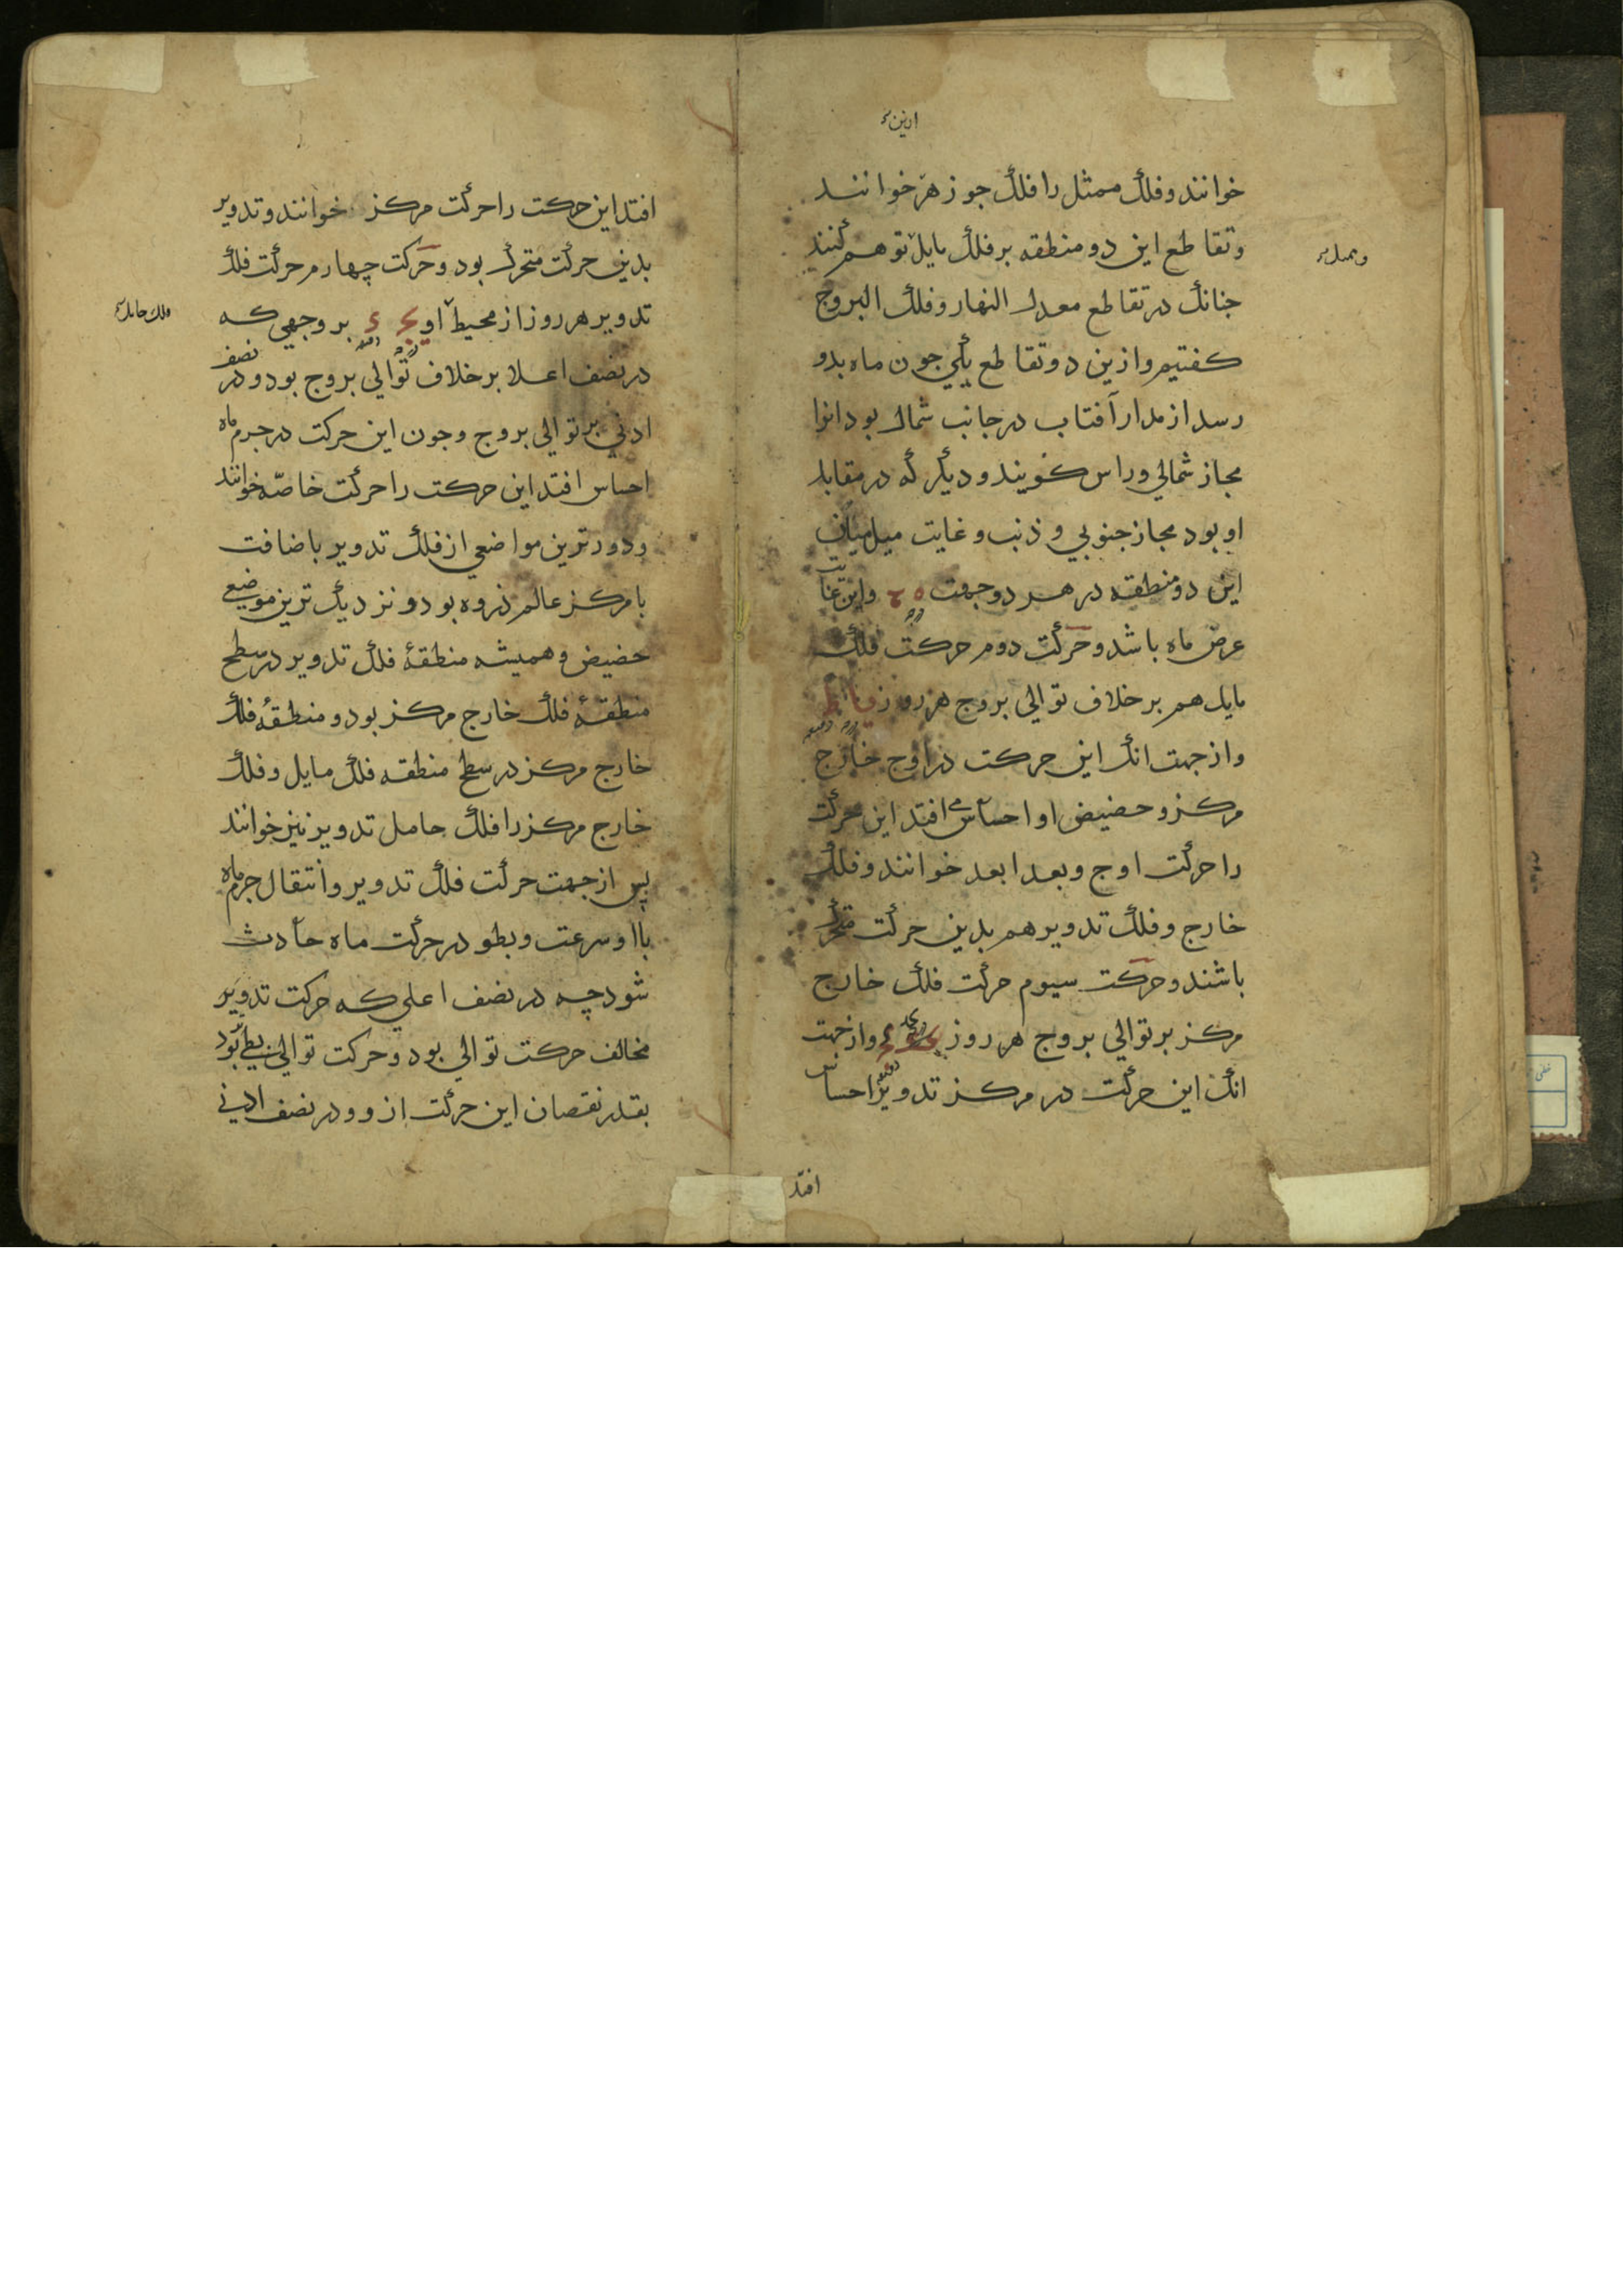 ازین
خوانند و فلک ممثل را فلک جوزهر خوانند
و تقاطع این دو منطقه بر فلک مایل توهم کنند
جنانک در تقاطع معدل النهار و فلک البروج
کفتیم و ازین دو تقاطع یکی جون ماه بدو
رسد از مدار آفتاب در جانب شمال بود انرا
مجاز شمالي و راس کویند و دیکر که در مقابله
او بود مجاز جنوبي و ذنب و غایت میل میان
این دو منطقه در هر دو جهت ه و این غایت
عرض ماه باشد و حرکت دوم حرکت فلک
مایل هم بر خلاف توالي بروج هر روز
و از جهت انک این حرکت در اوج خارج
مرکز و حضیض او احساس افتد این حرکت
را حرکت اوج و بعد ابعد خوانند و فلک
خارج و فلک تدویر هم بدین حرکت متحرک
باشند و حرکت سیوم حرکت فلک خارج
مرکز بر توالي بروج هر روز و از جهت
انک این حرکت در مرکز تدویر احساس
افتد
افتد این حرکت را حرکت مرکز خوانند و تدویر
بدین حرکت متحرک بود و حرکت چهارم حرکت فلک
تدویر هر روز از محیط او بر وجهي که
فلک حامل
در نصف اعلا بر خلاف توالي بروج بود و در نصف
ادني بر توالي بروج و جون این حرکت در جرم ماه
احساس افتد این حرکت را حرکت خاصّه خوانند
و دورترین مواضعي از فلک تدویر باضافت
با مرکز عالم ذروه بود و نزدیک ترین موضعي
حضیض و همیشه منطقهٔ فلک تدویر در سطح
منطقهٔ فلک خارج مرکز بود و منطقهٔ فلک
خارج مرکز در سطح منطقه فلک مایل و فلک
خارج مرکز را فلک حامل تدویر نیز خوانند
بس از جهت حرکت فلک تدویر و انتقال جرم ماه
با او سرعت و بطو در حرکت ماه حادث
شود چه در نصف اعلي که حرکت تدویر
مخالف حرکت توالي بود و حرکت توالي بطي بود
بقدر نقصان این حرکت ازو و در نصف ادني